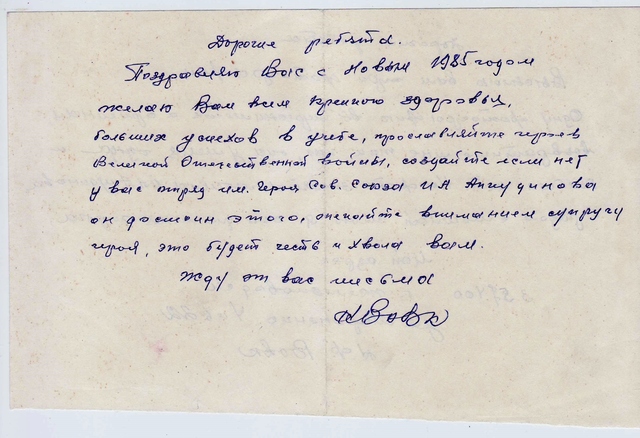 Дорогие ребята.
Поздравляю Вас с Новым 1985 годом
желаю Вам всем крепкого здоровья,
больших успехов в учебе, прославляйте героев
Великой Отечественной войны, создайте если нет
у вас отряд им. Героя Сов. Союза И А Анкудинова
он достоин этого, окружайте вниманием супругу
героя, это будет честь и хвала вам.
Жду от вас письма
Вовк